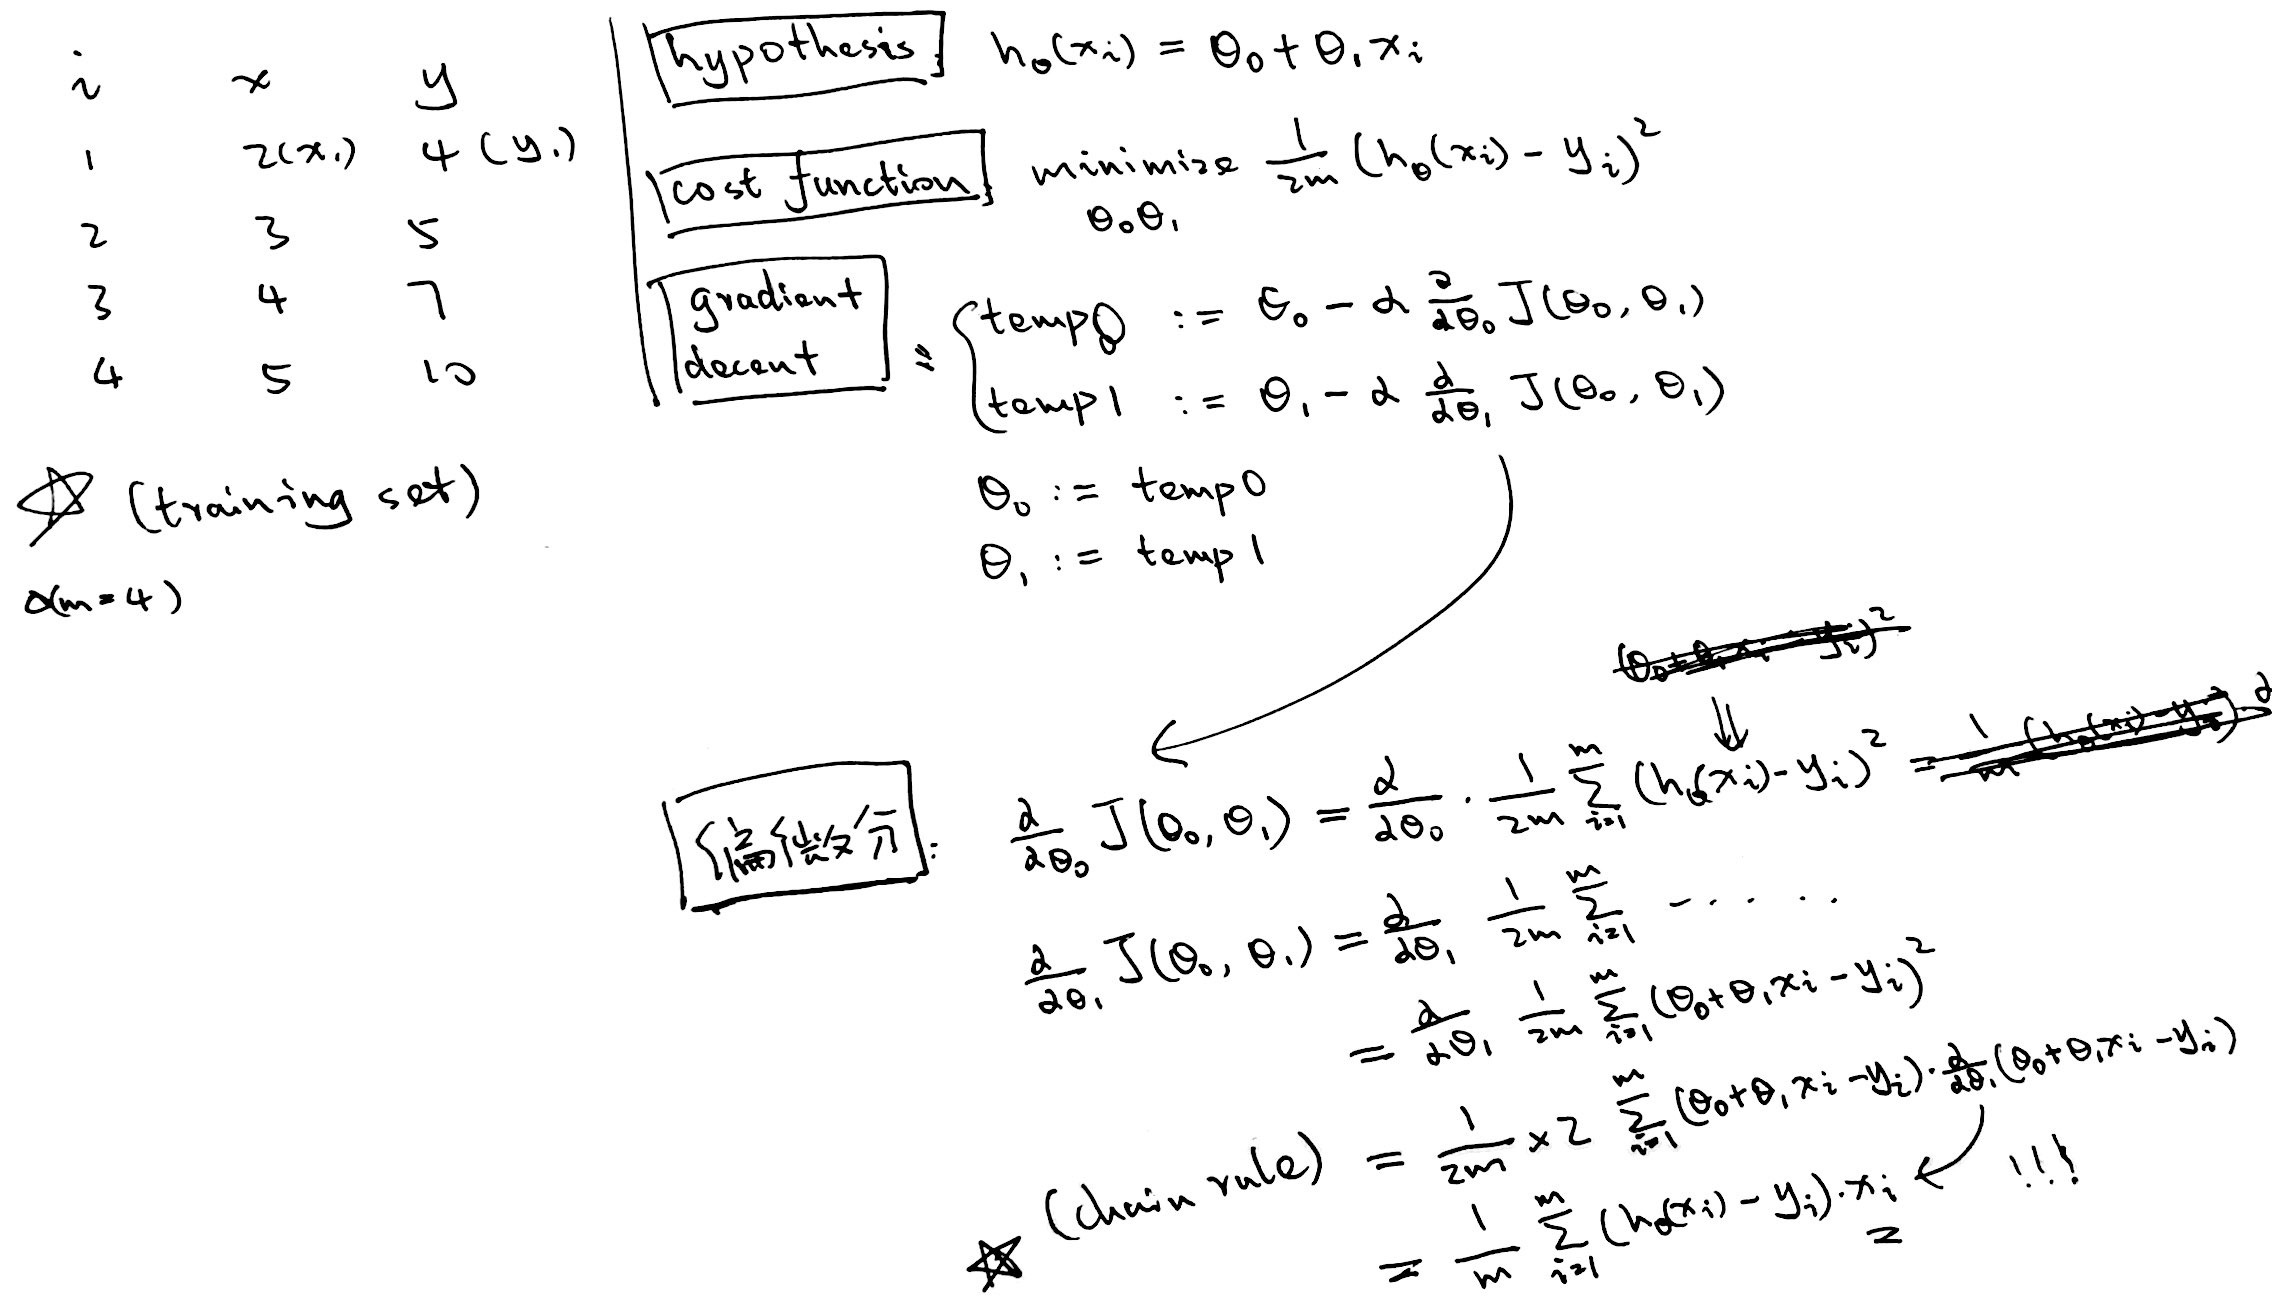 i x y
1 2(x₁) 4(y₁)
2 3 5
3 4 7
4 5 10
(training set)
(m=4)
hypothesis hθ(xi) = θ₀ + θ₁xi
cost function minimize 1/2m (hθ(xi) - yi)²
θ₀θ₁
gradient
decent :
temp0 := θ₀ - α ∂/∂θ₀ J(θ₀, θ₁)
temp1 := θ₁ - α ∂/∂θ₁ J(θ₀, θ₁)
θ₀ := temp0
θ₁ := temp1
(θ₀+θ₁xi - yi)²
偏微分: ∂/∂θ₀ J(θ₀, θ₁) = ∂/∂θ₀ · 1/2m Σ_{i=1}^{m} (hθ(xi) - yi)² = 1/m (hθ(xi) - yi) ∂
∂/∂θ₁ J(θ₀, θ₁) = ∂/∂θ₁ 1/2m Σ_{i=1}^{m} ······
= ∂/∂θ₁ 1/2m Σ_{i=1}^{m} (θ₀+θ₁xi - yi)²
(chain rule) = 1/2m × 2 Σ_{i=1}^{m} (θ₀+θ₁xi - yi) · ∂/∂θ₁ (θ₀+θ₁xi - yi)
= 1/m Σ_{i=1}^{m} (hθ(xi) - yi) · xi !!!